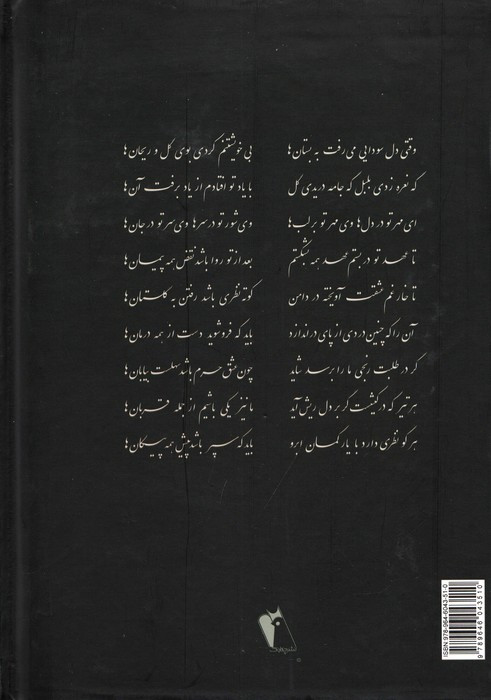 وقتی دل سودایی می‌رفت به بستان‌ها بی خویشتنم کردی بوی گل و ریحان‌ها
که نعره زدی بلبل که جامه دریدی گل با یاد تو افتادم از یاد برفت آن‌ها
ای مهر تو در دل‌ها وی مهر تو بر لب‌ها وی شور تو در سرها وی سر تو در جان‌ها
تا عهد تو دربستم عهد همه بشکستم بعد از تو روا باشد نقض همه پیمان‌ها
تا خار غم عشقت آویخته در دامن کوته نظری باشد رفتن به گلستان‌ها
آن را که چنین دردی از پای دراندازد باید که فروشوید دست از همه درمان‌ها
گر در طلبت رنجی ما را برسد شاید چون عشق حرم باشد سهلست بیابان‌ها
هر تیر که در کیشست گر بر دل ریش آید ما نیز یکی باشیم از جمله قربان‌ها
هر کو نظری دارد با یار کمان ابرو باید که سپر باشد پیش همه پیکان‌ها
ISBN 978-964-6043-51-0
9 789646 043510